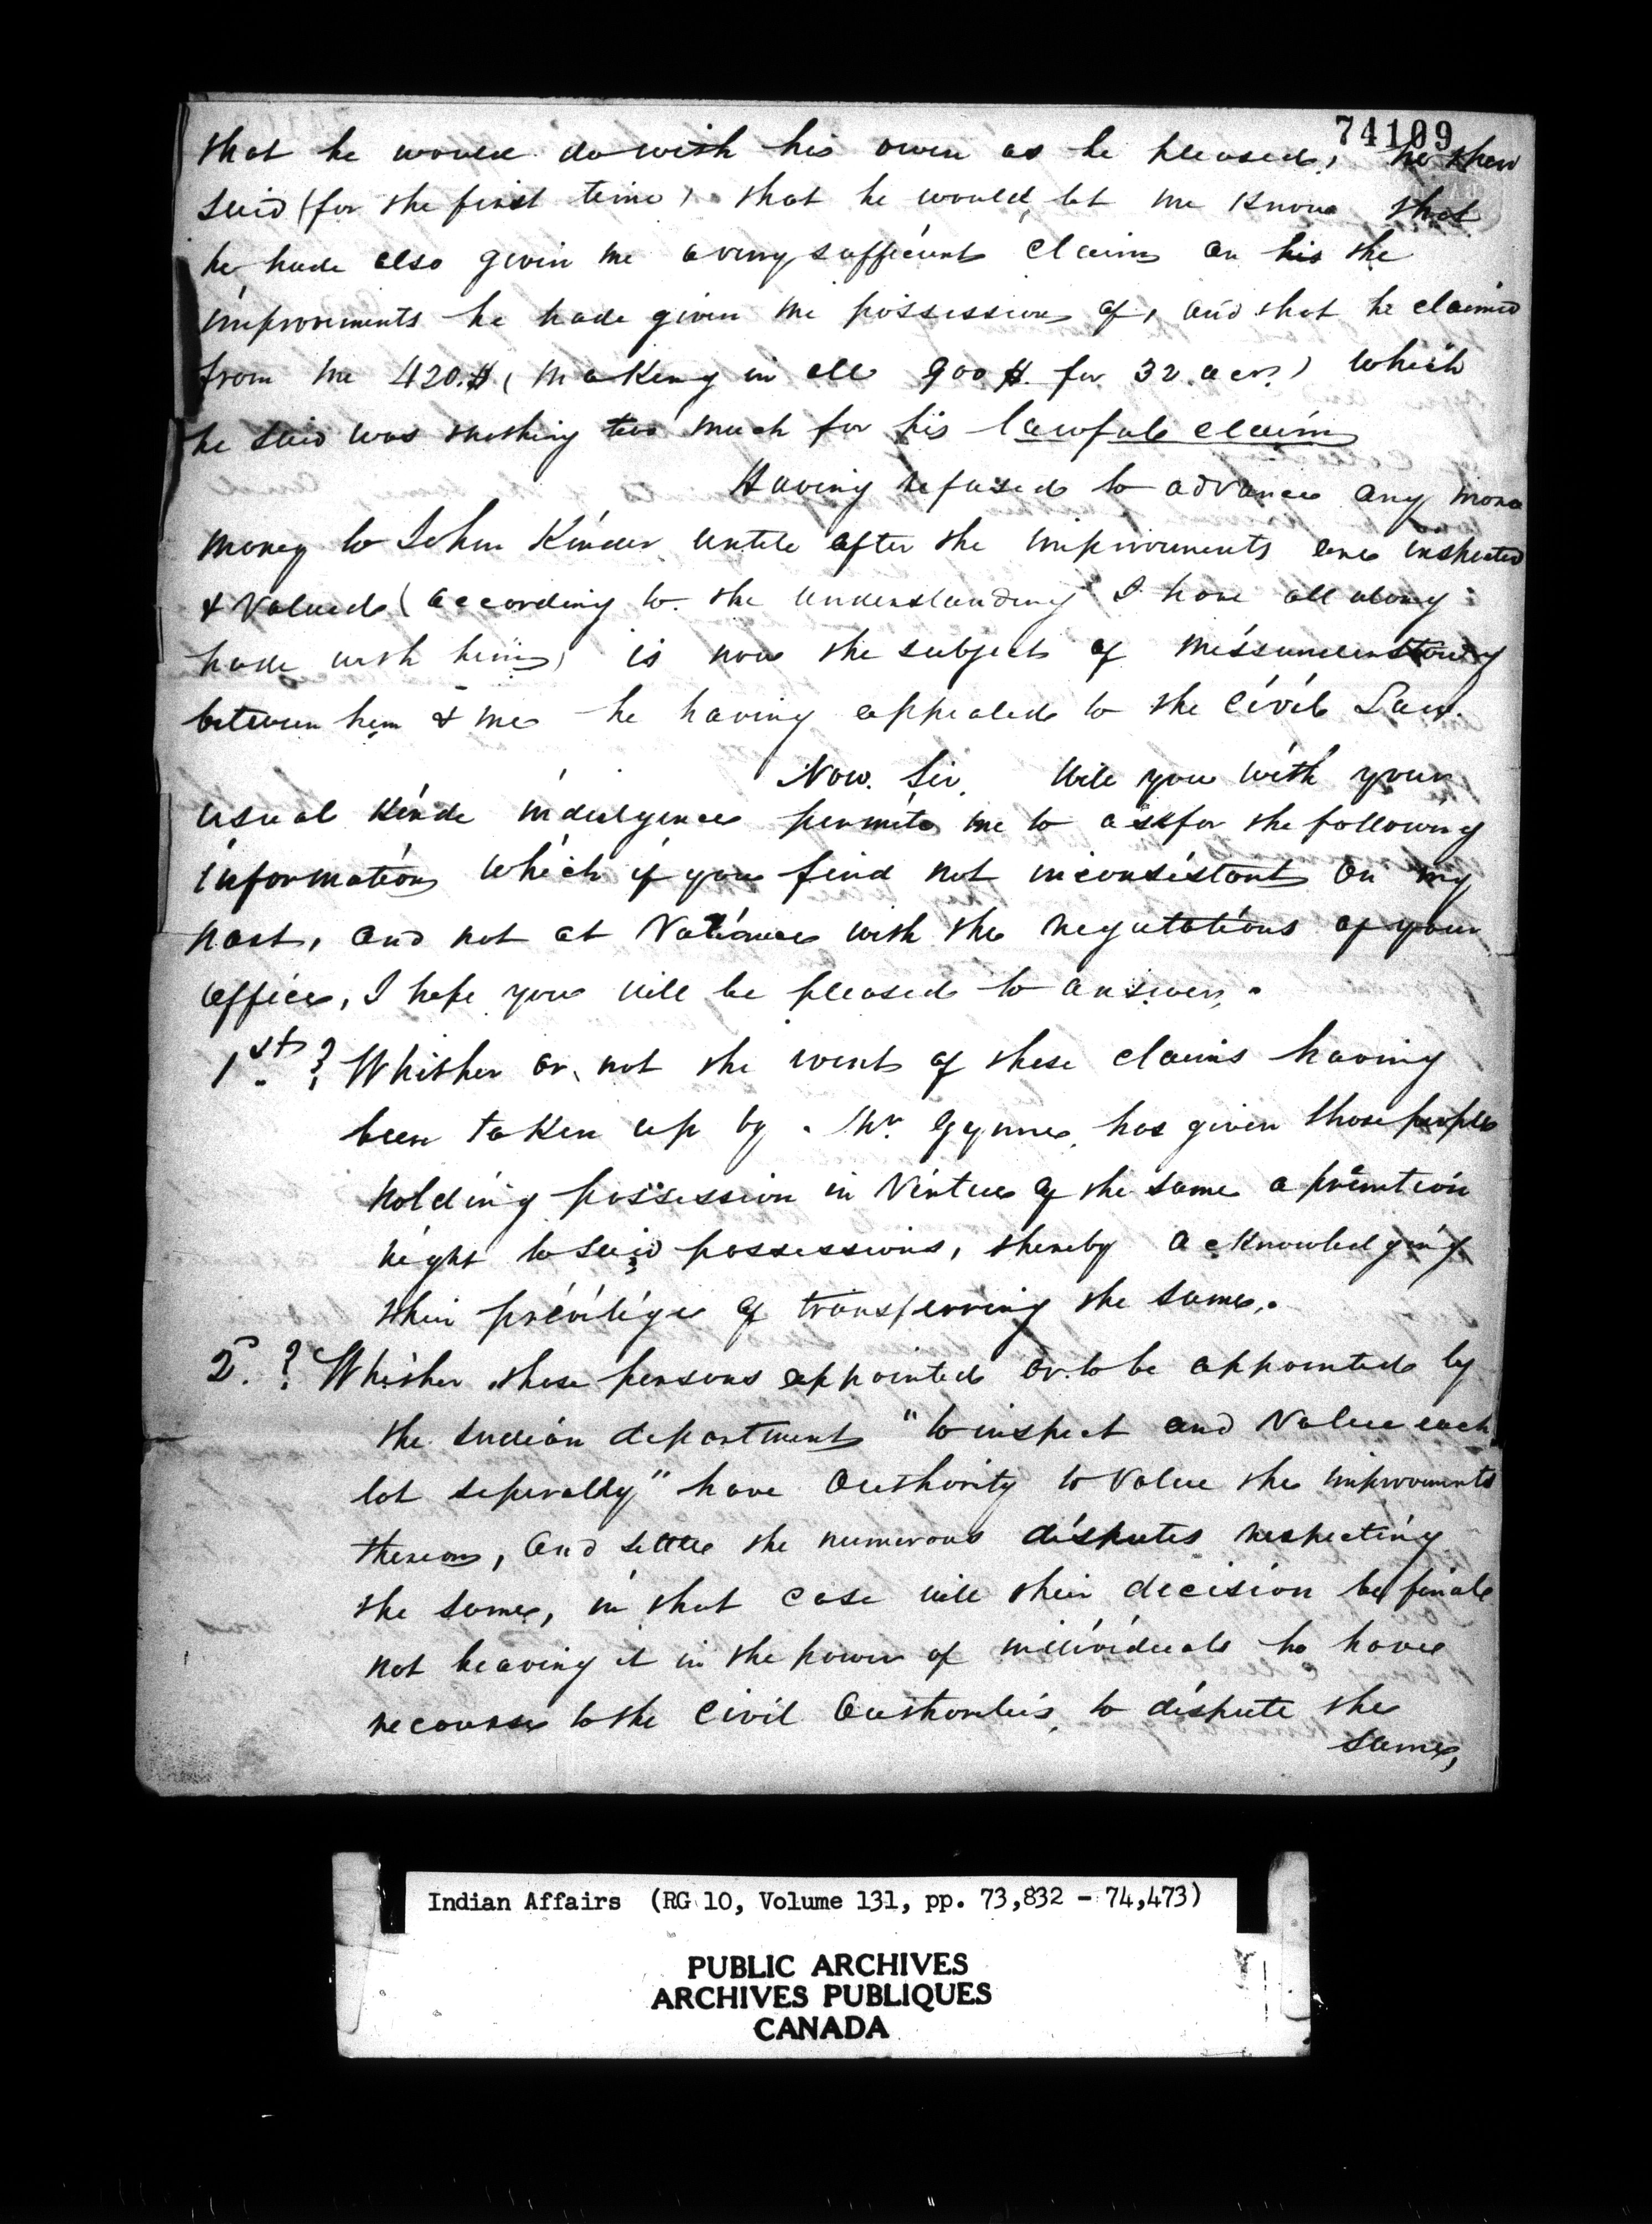 74109
that he would do with his own as he pleased, he then
said (for the first time) that he would let me know that
he hade also givin me a very sufficient claim on his the
improvements he hade given me possession of, and that he claimed
from me 420.$ (making in all 900$. for 32 acrs.) which
he said was nothing too much for his lawful claim
Having refused to advance any more
money to John Kinder untill after the improvements are inspected
& valued (according to the understanding I have all along
hade with him) is now the subject of missunderstanding
between him & me he having appealed to the Civil Law.
Now. Sir, Will you with your
usual kinde indulgence permite me to ask for the following
information which if you find not inconsistant on my
part, and not at Variance with the regutations of your
office, I hope you will be pleased to answer.
1st. ? Whither or not the rents of these claims having
been taken up by Mr. Gynne, has given those people
holding possession in Virtue of the same a premtion
right to said possessions, thereby acknowledging
their privilige of transferring the same.
2d. ? Whither these persons appointed or to be appointed by
the Indian department "to inspect and value each
lot seperally" have authority to value the improvements
thereon, and settle the numerous disputes respecting
the same, in that case will their decision be finale
not leaving it in the power of individuals to have
recourse to the Civil Authorities, to dispute the
same,
Indian Affairs (RG 10, Volume 131, pp. 73,832 - 74,473)
PUBLIC ARCHIVES
ARCHIVES PUBLIQUES
CANADA